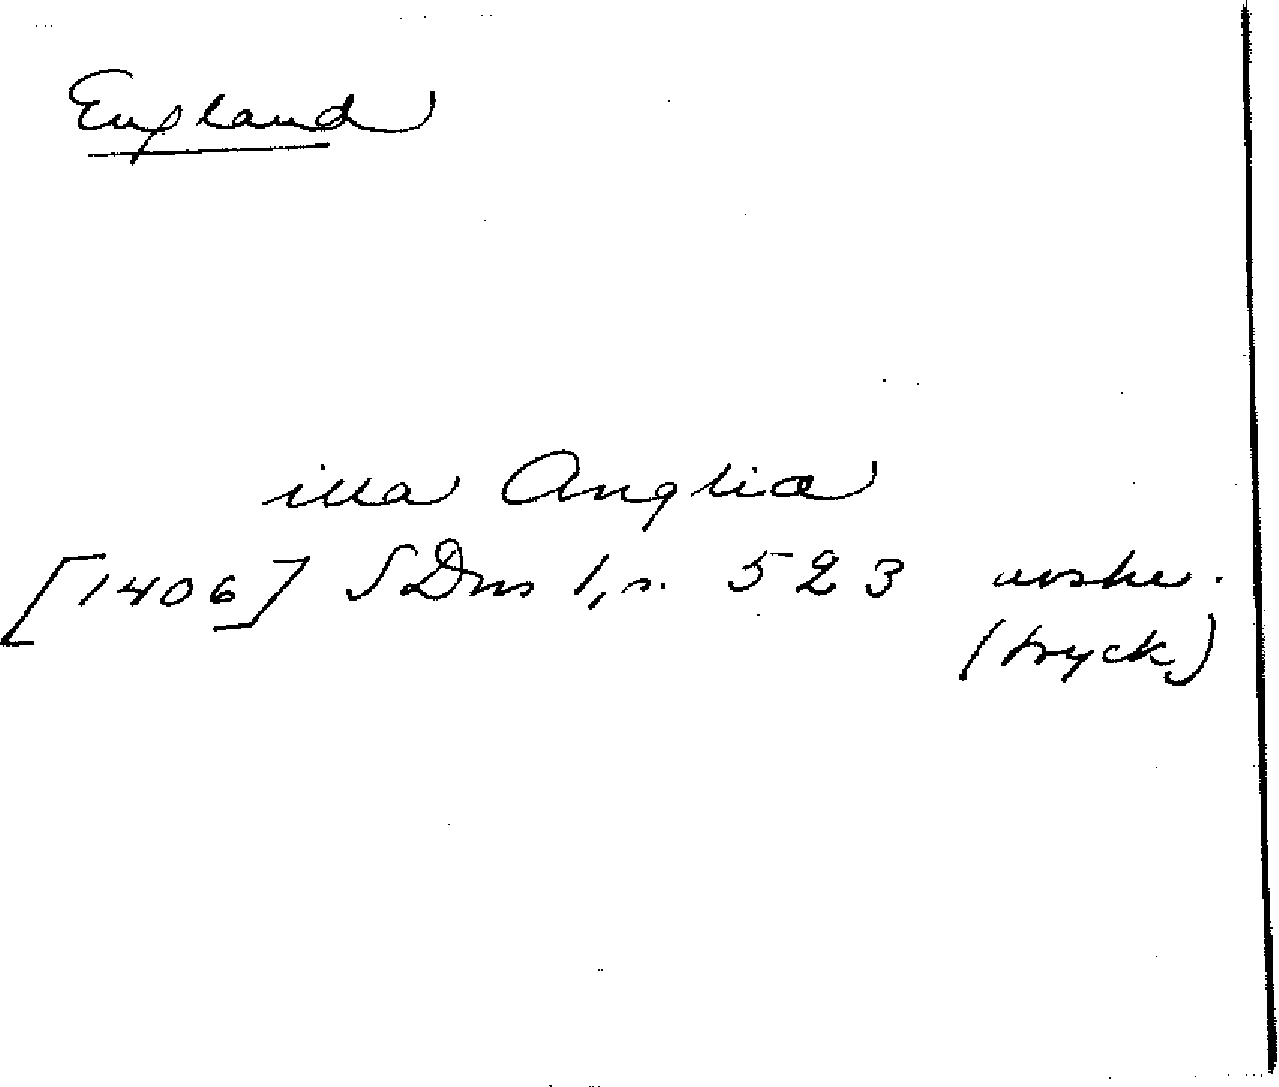 England
illa Anglia
[1406] SDns 1, s. 523 avskr.
(tryck)